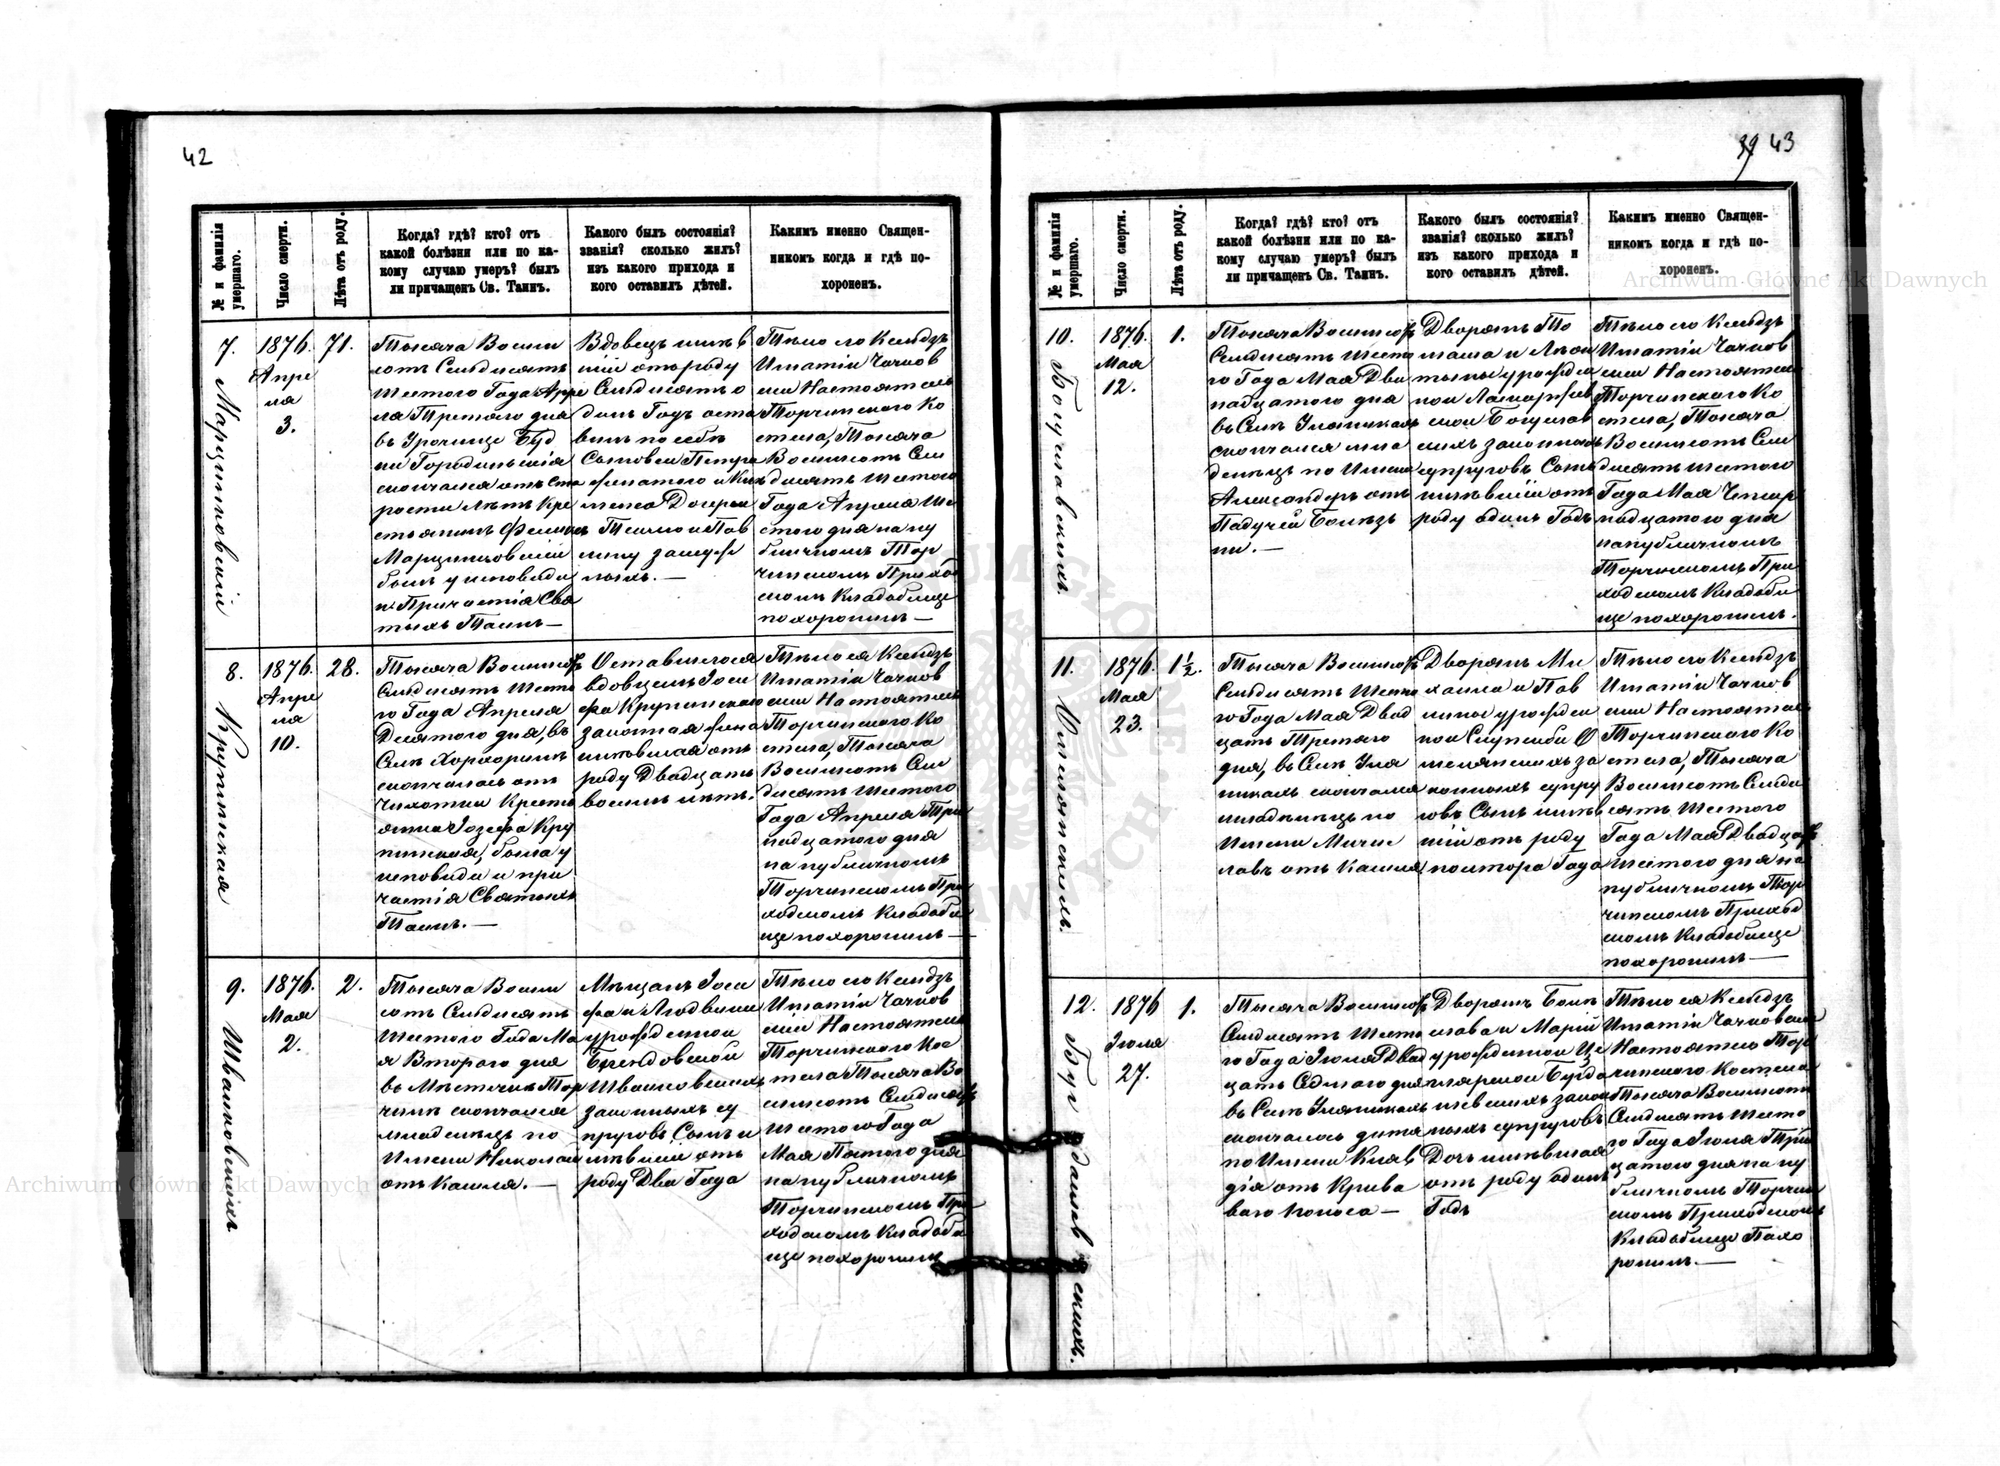 42
№ и фамилія умершаго.
Число смерти.
Лѣта отъ роду.
Когда? гдѣ? кто? отъ
какой болѣзни или по ка-
кому случаю умеръ? былъ
ли причащенъ Св. Таинъ.
Какого былъ состоянія?
званія? сколько жилъ?
изъ какого прихода и
кого оставилъ дѣтей.
Какимъ именно Священ-
никомъ когда и гдѣ по-
хороненъ.
7.
Марцинковскій
1876.
Апре
ля
3.
71.
Тысяча Восьм
сотъ Семдисятъ
Шестого Года Апре
ля Третяго дня
въ Урочище Буд
ки Городинскія
скончался отъ Ста
рости лѣтъ Кре
стьянинъ
Марцинковскій
былъ у исповиди
и Причастія Свя
тыхъ Таинъ—
Вдовецъ жив
шій отъ роду
Семдисятъ о
динъ Годъ оста
вилъ по себѣ
Сыновей Петра
Дочерей
Теклю и Пав
лину замуж
нихъ.—
Тѣло его Ксендзъ
Игнатій Чачков
скій Настоятель
Торчинскаго Ко
стела, Тысяча
Восимсотъ Сем
дисятъ Шестого
Года Апреля Ше
стого дня на пу
бличномъ Тор
чинскомъ Приход
скомъ Кладбище
похоронилъ—
8.
Крупинская
1876.
Апре
ля
10.
28.
Тысяча Восимсотъ
Семдисятъ Шесто
го Года Апреля
Десятого дня, въ
Селѣ Хорхоринѣ
скончалась отъ
Чихотки Кресть
янка Іозефа Кру
пинская, была у
исповиди и при
частія Святыхъ
Таинъ.—
Оставшегося
вдовцемъ Іоси
фа Крупинскаго
законная жена
жившая отъ
роду Двадцать
восимъ лѣтъ.
Тѣло ея Ксендзъ
Игнатій Чачков
скій Настоятель
Торчинскаго Ко
стела, Тысяча
Восимсотъ Сем
дисятъ Шестого
Года Апреля Три
надцатого дня
на публичномъ
Торчинскомъ При
ходскомъ Кладби
ще похоронилъ—
9.
Ивашковскихъ
1876.
Мая
2.
2.
Тысяча Восим
сотъ Семдисятъ
Шестого Года Ма
я Второго дня
въ Мѣстечкѣ Тор
чинѣ скончался
младенецъ по
Имени Николай
отъ Кашля.—
Мѣщанъ Іоси
фа и Людвики
урожденной
Брендовской
Ивашковскихъ
законныхъ су
пруговъ Сынъ и
мѣвший отъ
роду Два Года
Тѣло его Ксендзъ
Игнатій Чачков
скій Настоятель
Торчинскаго Кос
тела Тысяча Во
симсотъ Семдисятъ
Шестого Года
Мая Пятого дня
на публичномъ
Торчинскомъ При
ходскомъ Кладби
ще похоронилъ
39 43
№ и фамилія умершаго.
Число смерти.
Лѣта отъ роду.
Когда? гдѣ? кто? отъ
какой болѣзни или по ка-
кому случаю умеръ? былъ
ли причащенъ Св. Таинъ.
Какого былъ состоянія?
званія? сколько жилъ?
изъ какого прихода и
кого оставилъ дѣтей.
Какимъ именно Священ-
никомъ когда и гдѣ по-
хороненъ.
10.
Богуславскихъ.
1876.
Мая
12.
1.
Тысяча Восимсотъ
Семдисятъ Шесто
го Года Мая Два
надцатого дня
въ Селѣ Уляникахъ
скончался мла
денецъ по Имени
Александръ отъ
Падучей Болѣз
ни.—
Дворянъ То
маша и
урожден
ной
Богуслав
скихъ законныхъ
супруговъ Сынъ
жившій отъ
роду одинъ Годъ
Тѣло его Ксендзъ
Игнатій Чачков
скій Настоятель
Торчинскаго Ко
стела, Тысяча
Восимсотъ Сем
дисятъ шестого
Года Мая Четыр
надцатого дня
на публичномъ
Торчинскомъ При
ходскомъ Кладби
ще похоронилъ.
11.
1876.
Мая
23.
1½.
Тысяча Восимсотъ
Семдисятъ Шесто
го Года Мая Двад
цать Третяго
дня, въ Селѣ Уля
никахъ скончался
младенецъ по
Имени Мечис
лавъ отъ Кашля
Дворянъ Ми
хаила и Пав
лины урожден
ной
за
конныхъ супру
говъ Сынъ жив
шій отъ роду
полтора Года
Тѣло его Ксендзъ
Игнатій Чачков
скій Настоятель
Торчинскаго Ко
стела, Тысяча
Восимсотъ Семди
сятъ Шестого
Года Мая Двадцать
Шестого дня на
публичномъ Тор
чинскомъ Приход
скомъ Кладбище
похоронилъ—
12.
1876
Іюля
27.
1.
Тысяча Восимсотъ
Семдисятъ Шесто
го Года Іюля Двад
цать Седмого дня
въ Селѣ Уляникахъ
скончалась дитя
по Имени Клав
дія отъ Крова
ваго поноса—
Дворянъ Боле
слава и Маріи
урожденной
законныхъ супруговъ
Дочь жившая
отъ роду одинъ
Годъ
Тѣло ея Ксендзъ
Игнатій Чачковскій
Настоятель Тор
чинскаго Костела
Тысяча Восимсотъ
Семдисятъ Шесто
го Года Іюля Трид
цатого дня на пу
бличномъ Торчин
скомъ Приходскомъ
Кладбище Похо
ронилъ.—
Archiwum Główne Akt Dawnych
Archiwum Główne Akt Dawnych